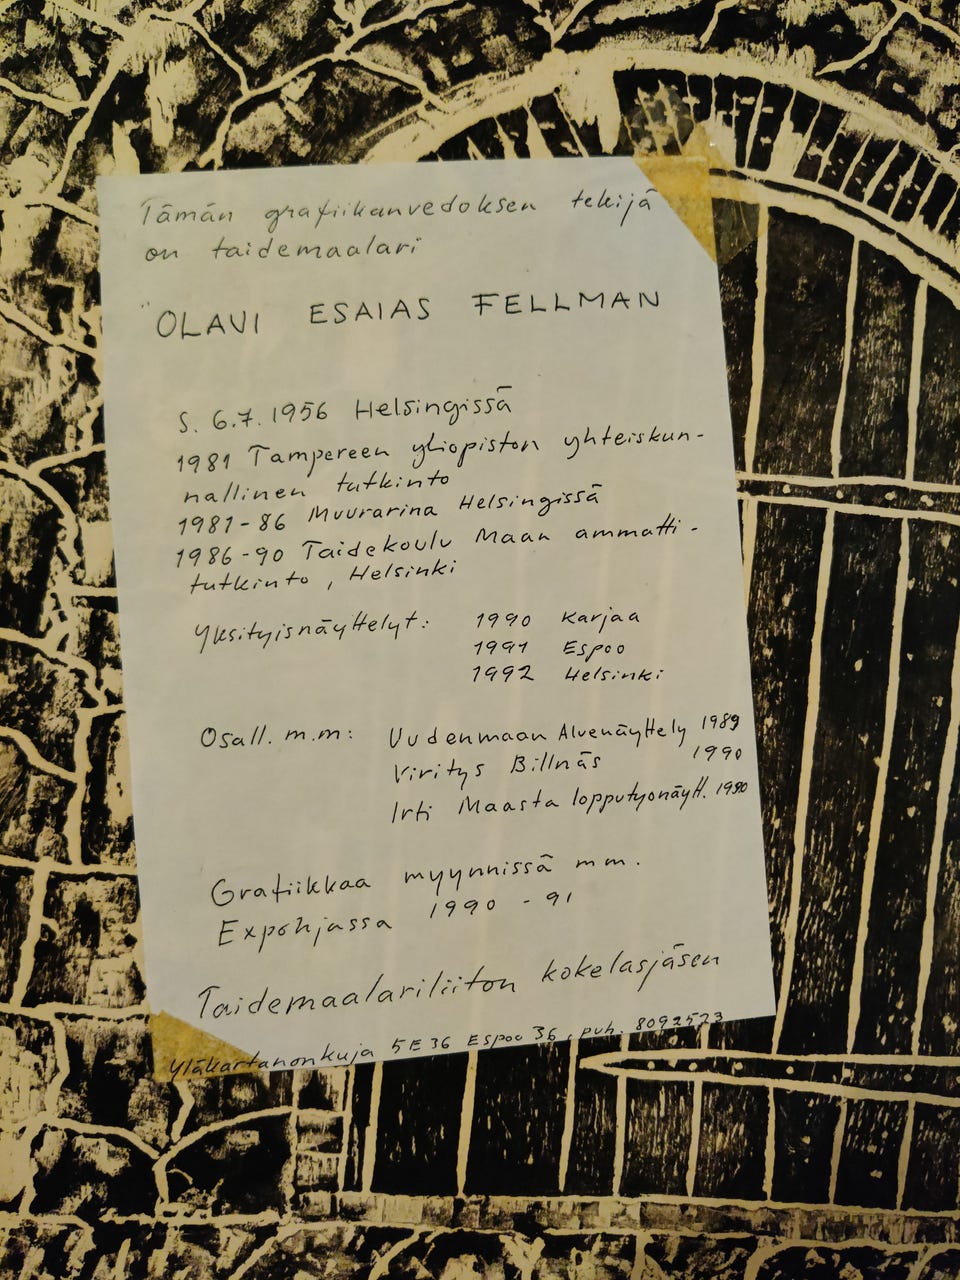 Tämän grafiikanvedoksen tekijä
on taidemaalari
OLAVI ESAIAS FELLMAN
s. 6.7.1956 Helsingissä
1981 Tampereen yliopiston yhteiskun-
nallinen tutkinto
1981-86 Muurarina Helsingissä
1986-90 Taidekoulu Maan ammatti-
tutkinto, Helsinki
Yksityisnäyttelyt: 1990 Karjaa
1991 Espoo
1992 Helsinki
Osall. m.m: Uudenmaan Aluenäyttely 1989
Viritys Billnäs 1990
Irti Maasta lopputyönäytt. 1990
Grafiikkaa myynnissä mm.
Expohjassa 1990 - 91
Taidemaalariliiton kokelasjäsen
Yläkartanonkuja 5E36 Espoo 36, puh. 8092523